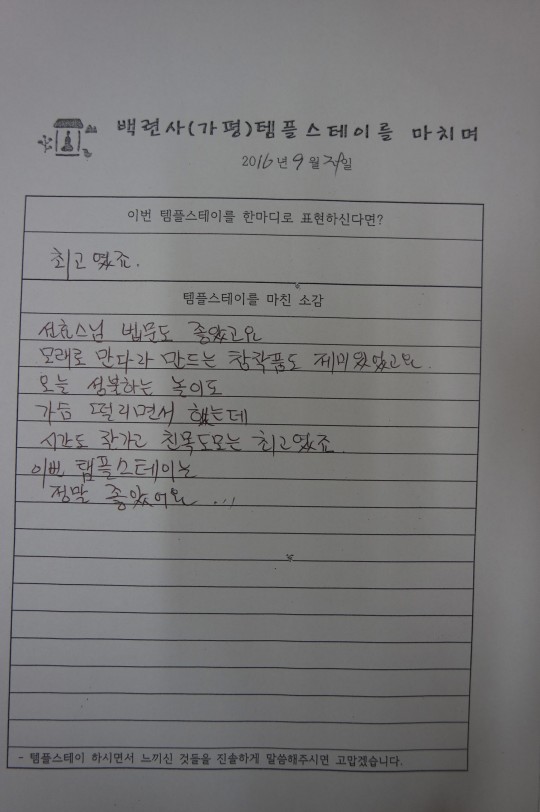 백련사(가평)템플스테이를 마치며
2016년 9월 일
이번 템플스테이를 한마디로 표현하신다면?
최고였죠.
템플스테이를 마친 소감
선효스님 법문도 좋았고요
모래로 만다라 만드는 창작품도 제미있었고요.
오늘 성불하는 놀이도
가슴 떨리면서 했는데
시간도 잘가고 친목도모는 최고였죠.
이번 탬플스테이는
정말 좋았어요...
- 템플스테이 하시면서 느끼신 것들을 진솔하게 말씀해주시면 고맙겠습니다.